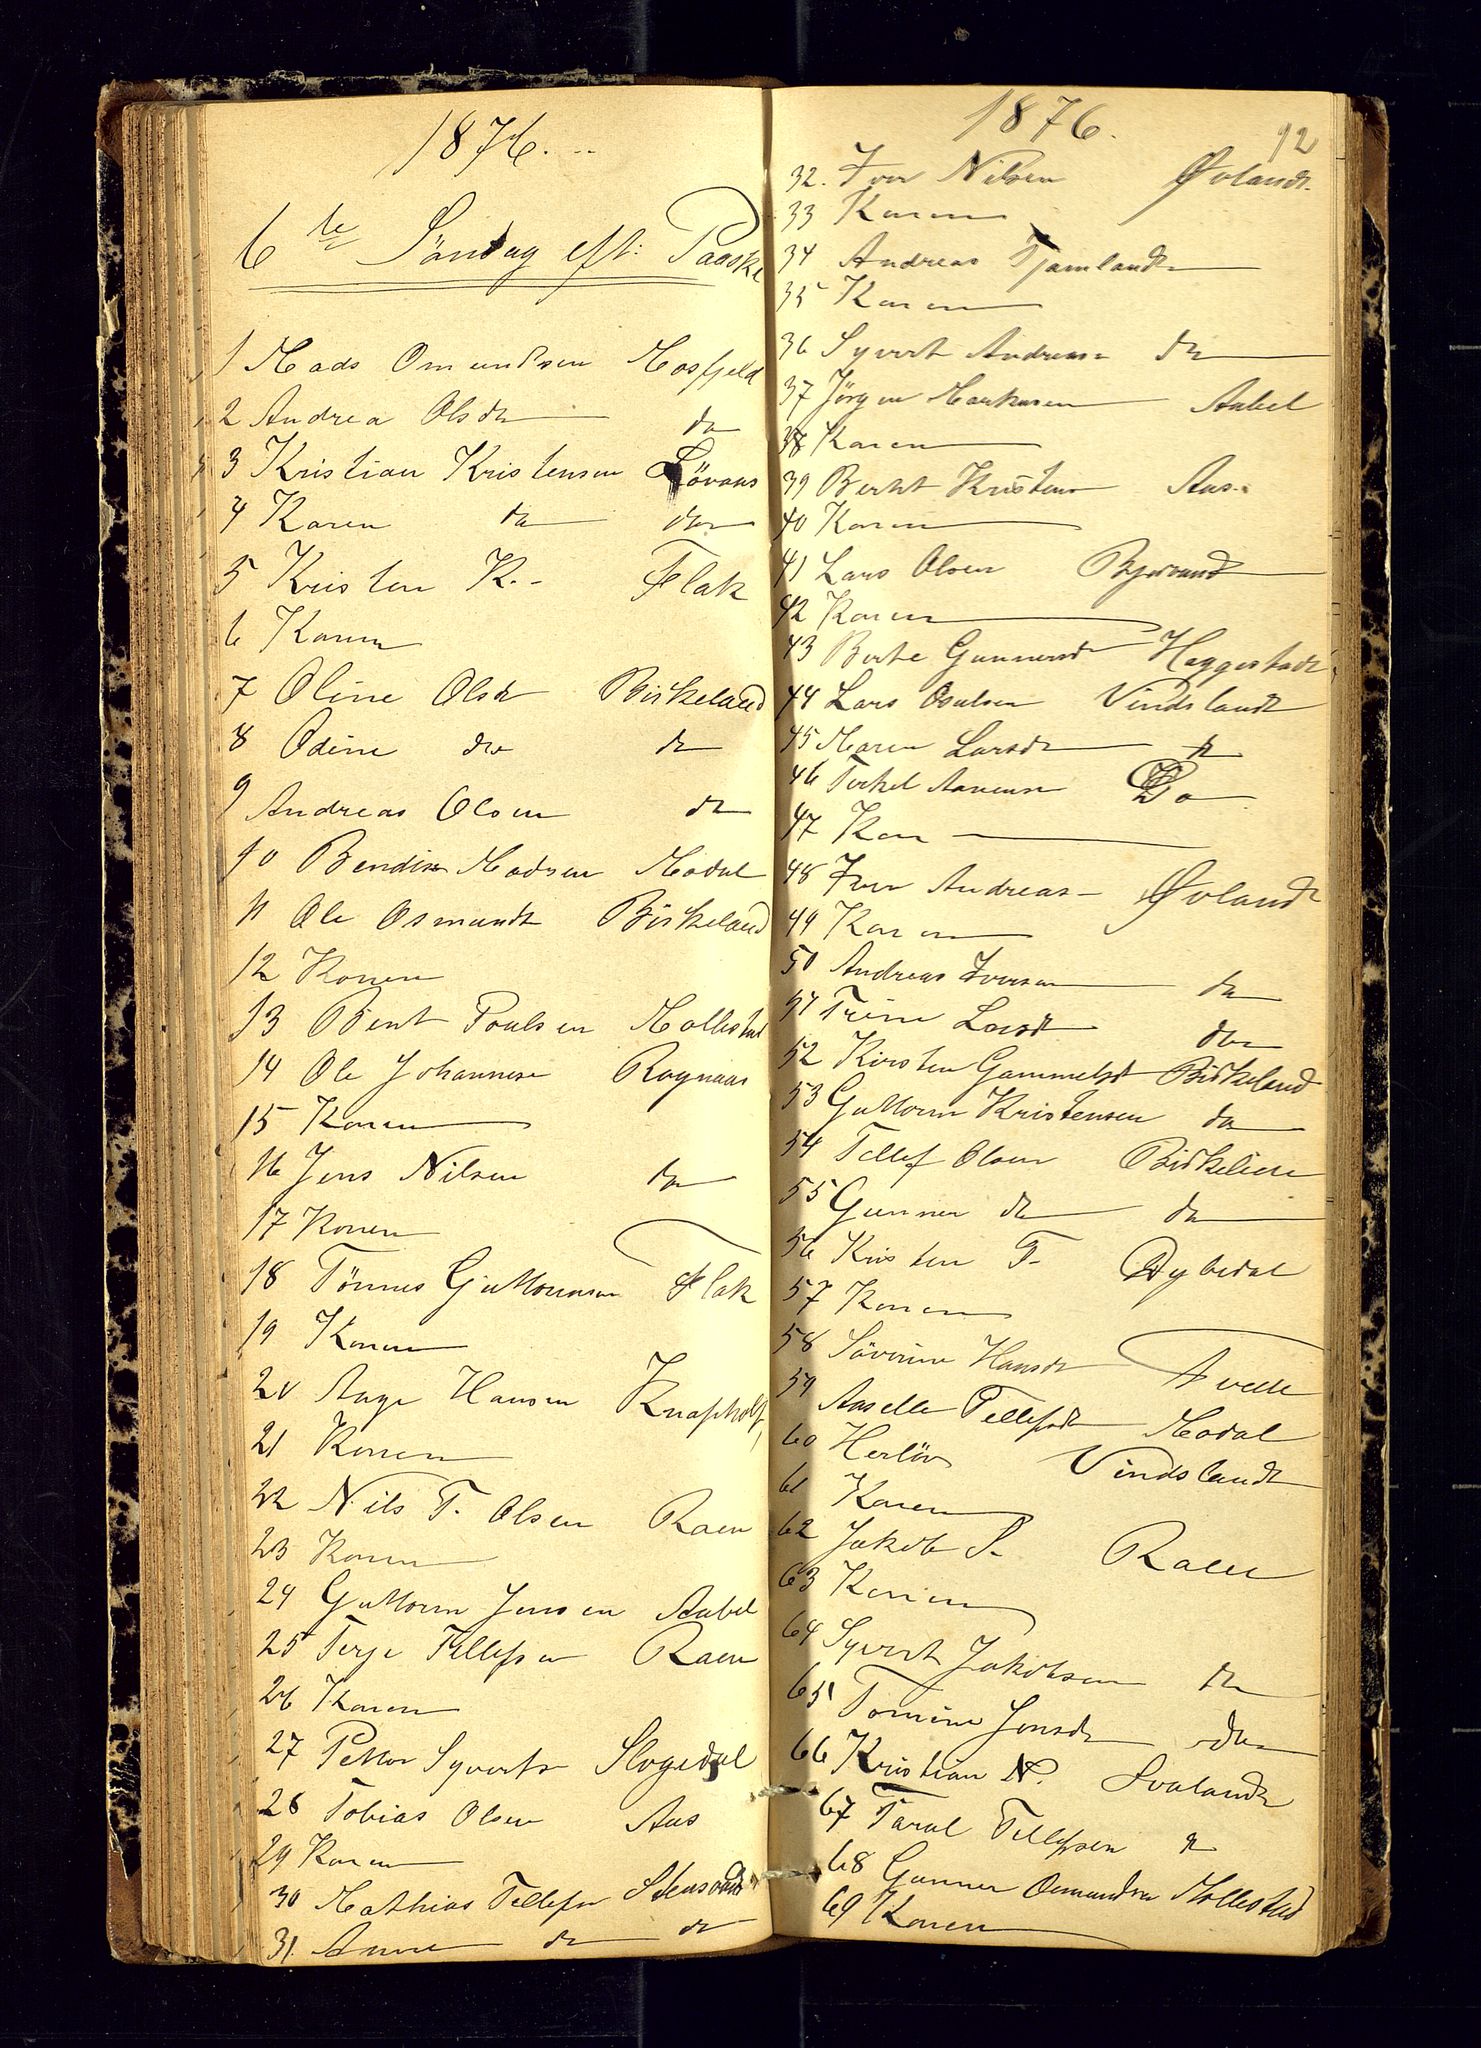 1876.
6te Søndag eft: Paaske
1 Mads Omundsen Mosfjeld
2 Andrea Olsdr do
3 Kristian Kristensen Løvaas
4 Karen do do
5 Kristen K. Flak
6 Konen
7 Oline Olsdr Birkeland
8 Odine do do
9 Andreas Olsen do
10 Bendix Madsen Modal
11 Ole Osmundt Birkeland
12 Konen
13 Bent Poulsen Mollestad
14 Ole Johannesen Rognaas
15 Konen
16 Jens Nilsen do
17 Konen
18 Tønnes Guttormsen Flak
19 Konen
20 Aage Hansen
21 Konen
22 Nils T. Olsen Raen
23 Konen
24 Guttorm Jensen Aabel
25 Terje Tellefsen Raen
26 Konen
27 Petter Syverts Slogedal
28 Tobias Olsen Aas
29 Konen
30 Mathias Tellefsen Stensvand
31. Anne do do
1876.
92
32. Iver Nilsen Øvlandt
33 Konen
34 Andreas Tjomlandt
35 Konen
36 Syvert Andreas do
37 Jörgen Markusen Aabel
38 Konen
39 Berht Kristens Aas
40 Konen
41 Lars Olsen
42 Konen
43 Berte Gunnersd Heggestadt
44 Lars Osulsen Vindslandt
45 Maren Larsdt do
46 Terkel Aanensn Do
47 Kon
48 Iver Andreas Øvlandt
49 Konen
50 Andreas Iversen do
51 Trine Larsdt do
52 Kirsten Gammelsdt Birkeland
53 Guttorm Kristensen do
54 Tellef Olsen Birkelien
55 Gunner do do
56 Kristen T. Dybedal
57 Konen
58 Søverine Hansdt Tvede
59 Aaselle Tellefsdt Modal
60 Herløv Vindslandt
61 Konen
62 Jakob S. Raen
63 Konen
64 Syvert Jakobsen do
65 Tomine Jonsdt do
66 Kristian N. Svalandt
67 Taral Tellefsen do
68 Gunner Osmundsen Mollestad
69 Konen